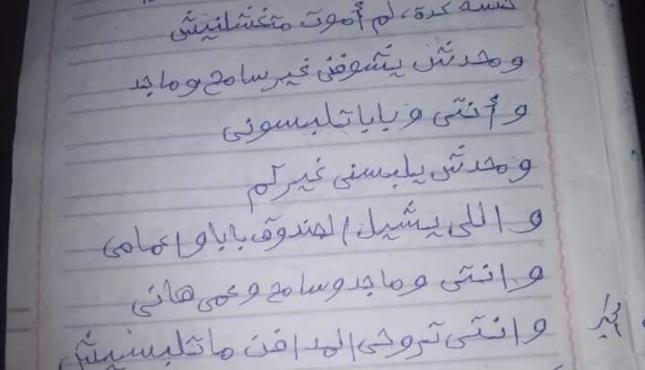 نفسه كدة، لم أموت متغسلنيش
ومحدش يشوفني غير سامح وماجد
وأنتي وبابا تلبسوني
ومحدش يلبسني غيركم
واللي يشيل الصندوق بابا واعمامي
وانتي وماجد وسامح وعمي هاني
وانتي تروحي المدافن ماتلبسيش